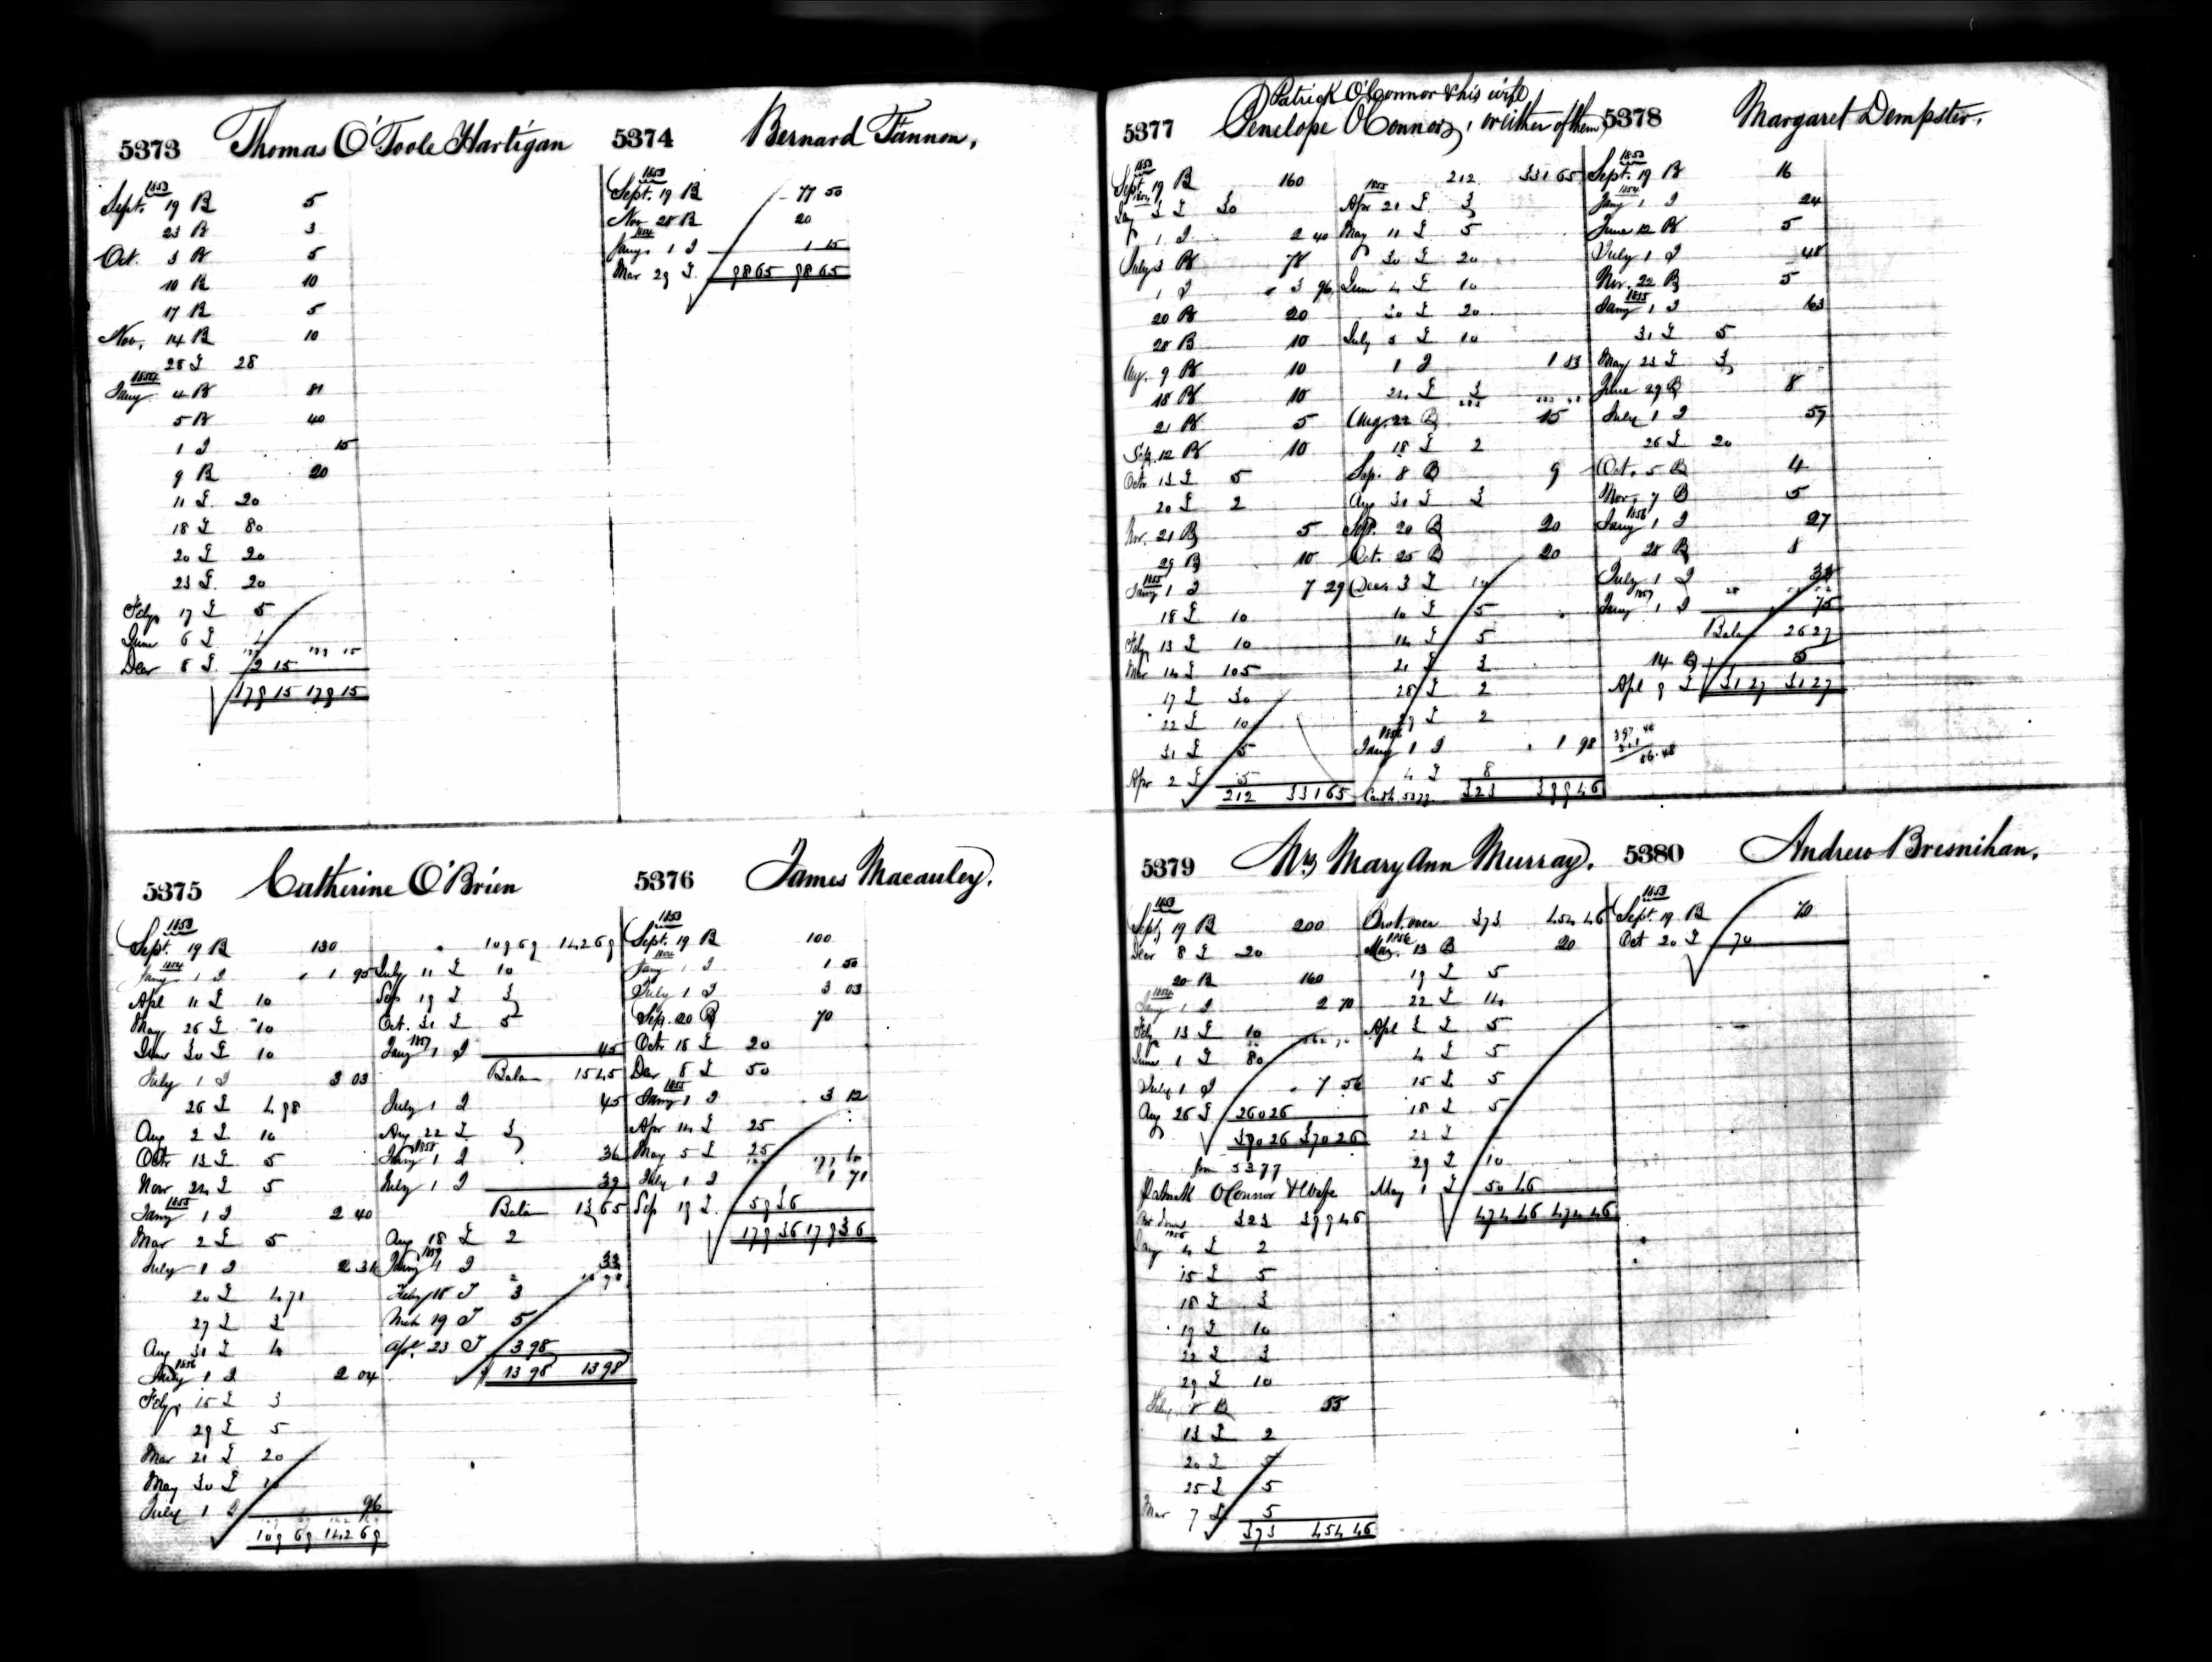 5373 Thomas O'Toole Hartigan
1853
Sept. 19 B 5
23 B 3
Oct. 3 B 5
10 B 10
17 B 5
Nov. 14 B 10
25 I 28
1854
Jany 4 B 81
5 B 40
1 I 15
9 B 20
11 I 20
18 I 80
20 I 20
23 I 20
Feby 17 I 5
June 6 I 4
Decr 8 I 2 15
179 15 179 15
5374 Bernard Fannon,
1853
Sept. 19 B 77 50
Nov 28 B 20
1854
Jany 1 I 1 15
Mar 29 I 98 65 98 65
5375 Catherine O'Brien
1853
Sept. 19 B 130
1854
Jany 1 I 1 95
Apl 11 I 10
May 26 I 10
June 30 I 10
July 1 I 3 03
26 I 4 98
Aug 2 I 10
Octr 13 I 5
Novr 24 I 5
1855
Jany 1 I 2 40
Mar 2 I 5
July 1 I 2 31
20 I 4 71
27 I 3
Aug 31 I 4
1856
Jany 1 I 2 04
Feby 15 I 3
29 I 5
Mar 21 I 20
May 30 I 10
July 1 I 96
109 69 142 69
109 69 142 69
July 11 I 10
Sep 19 I 3
Oct. 31 I 5
1857
Jany 1 I 45
Balan 15 45
July 1 I 45
Aug 22 I 3
1858
Jany 1 I 36
July 1 I 39
Balan 13 65
Aug 18 I 2
1859
Jany 1 I 33
Feby 18 I 3
Mch 19 I 5
Apl. 23 I 3 98
13 98 13 98
5376 James Macauley.
1853
Sept. 19 B 100
1854
Jany 1 I 1 50
July 1 I 3 03
Sep. 20 B 70
Octr 18 I 20
Decr 8 I 50
1855
Jany 1 I 3 12
Apr 14 I 25
May 5 I 25
July 1 I 1 71
Sep 19 I 59 36
179 36 179 36
Patrick O'Connor & his wife
5377 Penelope O'Connor, or either of them
1853
Sept. 19 B 160
1854
Jany 3 I 30
1 I 2 40
July 3 B 78
1 I 3 96
20 B 20
28 B 10
Aug. 9 B 10
18 B 10
21 B 5
Sep. 12 B 10
Octr 13 I 5
20 I 2
Nov. 21 B 5
29 B 10
1855
Jany 1 I 7 29
18 I 10
Feby 13 I 10
Mar 14 I 105
17 I 30
22 I 10
31 I 5
Apr 2 I 5
212 331 65
212 331 65
1855
Apr 21 I 3
May 11 I 5
30 I 20
June 4 I 10
30 I 20
July 5 I 10
1 I 1 83
24 I 3
Aug. 22 B 15
18 I 2
Sep. 8 B 9
Aug 31 I 3
Sept. 20 B 20
Oct. 25 B 20
Decr 3 I 10
10 I 5
14 I 5
21 I 3
28 I 2
29 I 2
1856
Jany 1 I 1 98
4 I 8
323 399 46
5378 Margaret Dempster.
1853
Sept. 19 B 16
1854
Jany 1 I 24
June 12 B 5
July 1 I 48
Nov. 22 B 5
1855
Jany 1 I 63
31 I 5
May 23 I 3
June 29 B 8
July 1 I 59
26 I 20
Oct. 5 B 4
Nov. 7 B 5
1856
Jany 1 I 27
28 B 8
July 1 I 33
1857
Jany 1 I 75
Balan 26 27
14 B 5
Apl 9 I 31 27 31 27
5379 Mrs Mary Ann Murray.
1853
Sept. 19 B 200
Decr 8 I 20
20 B 160
1854
Jany 1 I 2 70
Feby 13 I 10
June 1 I 80
July 1 I 7 56
Aug 26 I 260 26
370 26 370 26
from 5377
Patrick O'Connor & Wife
323 399 46
1856
Jany 4 I 2
15 I 5
18 I 3
19 I 10
22 I 3
29 I 10
Feby 8 B 55
13 I 2
20 I 5
25 I 5
Mar 7 I 5
373 454 46
Brot. over 373 454 46
1856
Mar. 13 B 20
19 I 5
22 I 14
Apl 3 I 5
4 I 5
15 I 5
18 I 5
23 I
29 I 10
May 1 I 50 46
474 46 474 46
5380 Andrew Bresnihan.
1853
Sept. 19 B 70
Oct 20 I 70